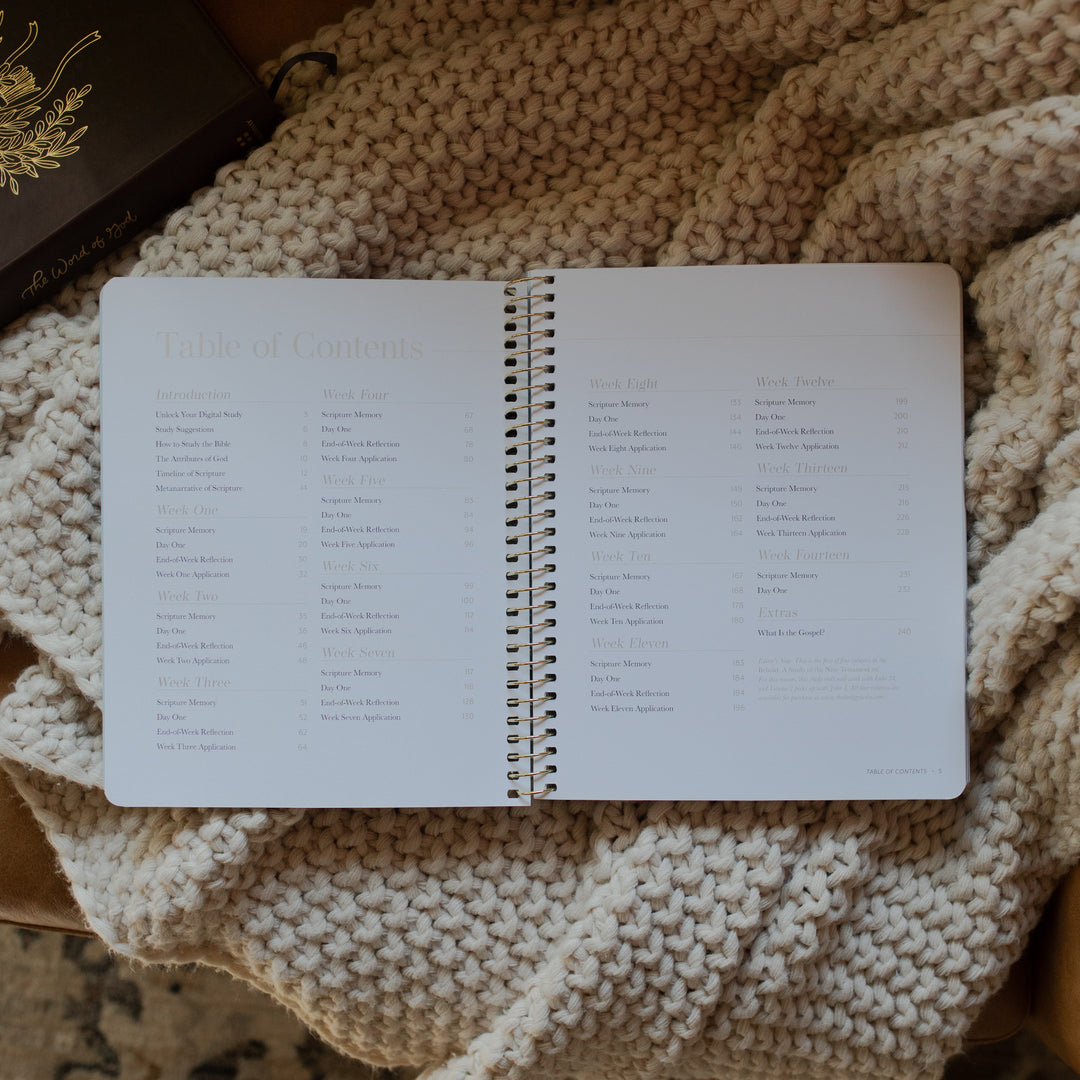 The Word of God
Table of Contents
Introduction
Unlock Your Digital Study 3
Study Suggestions 6
How to Study the Bible 8
The Attributes of God 10
Timeline of Scripture 12
Metanarrative of Scripture 14
Week One
Scripture Memory 19
Day One 20
End-of-Week Reflection 30
Week One Application 32
Week Two
Scripture Memory 35
Day One 36
End-of-Week Reflection 46
Week Two Application 48
Week Three
Scripture Memory 51
Day One 52
End-of-Week Reflection 62
Week Three Application 64
Week Four
Scripture Memory 67
Day One 68
End-of-Week Reflection 78
Week Four Application 80
Week Five
Scripture Memory 83
Day One 84
End-of-Week Reflection 94
Week Five Application 96
Week Six
Scripture Memory 99
Day One 100
End-of-Week Reflection 112
Week Six Application 114
Week Seven
Scripture Memory 117
Day One 118
End-of-Week Reflection 128
Week Seven Application 130
Week Eight
Scripture Memory 133
Day One 134
End-of-Week Reflection 144
Week Eight Application 146
Week Nine
Scripture Memory 149
Day One 150
End-of-Week Reflection 162
Week Nine Application 164
Week Ten
Scripture Memory 167
Day One 168
End-of-Week Reflection 178
Week Ten Application 180
Week Eleven
Scripture Memory 183
Day One 184
End-of-Week Reflection 194
Week Eleven Application 196
Week Twelve
Scripture Memory 199
Day One 200
End-of-Week Reflection 210
Week Twelve Application 212
Week Thirteen
Scripture Memory 215
Day One 216
End-of-Week Reflection 226
Week Thirteen Application 228
Week Fourteen
Scripture Memory 231
Day One 232
Extras
What Is the Gospel? 240
Editor's Note: This is the first of four volumes in the
Behold: A Study of the New Testament
TABLE OF CONTENTS • 5